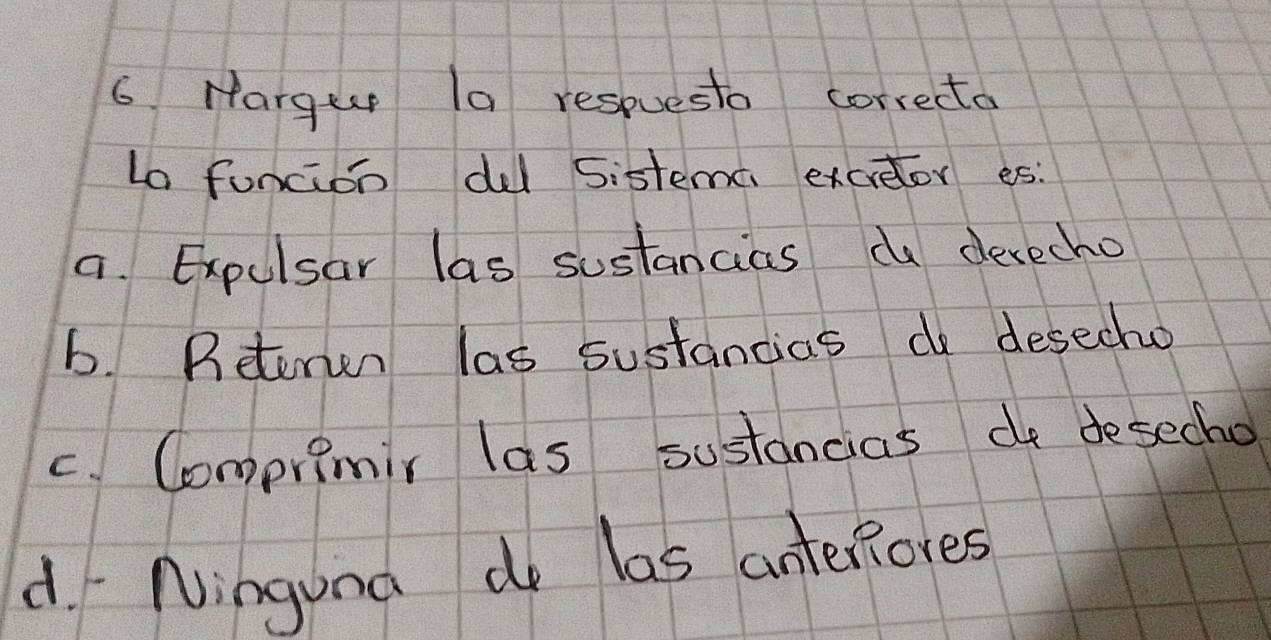 6. Marque la respuesta correcta
La función del Sistema excretor es:
a. Expulsar las sustancias de desecho
b. Retenen las sustancias de desecho
c. Comprimir las sustancias de desecho
d.- Ninguna de las anteriores